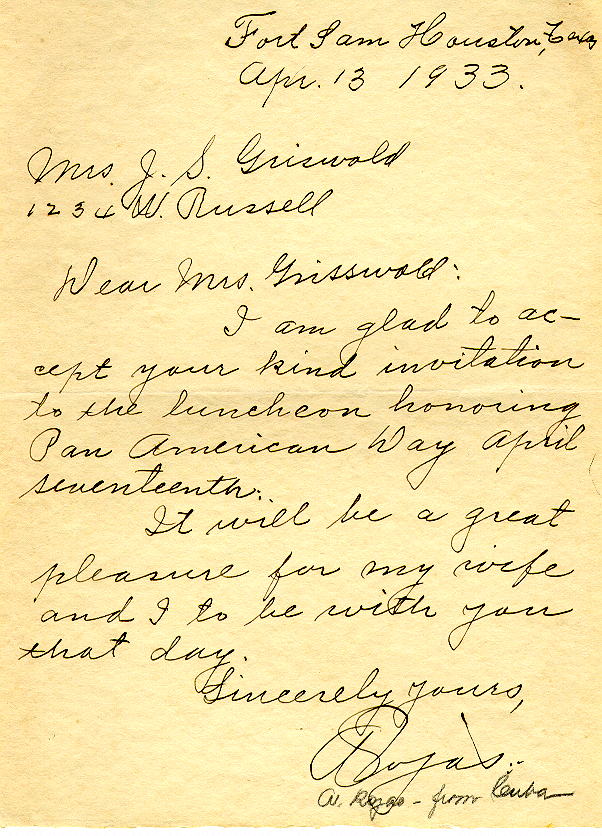 Fort Sam Houston, Texas
Apr. 13 1933.
Mrs. J. S. Griswold
1234 W. Russell
Dear Mrs. Grisswold:
I am glad to ac-
cept your kind invitation
to the luncheon honoring
Pan American Day April
seventeenth.
It will be a great
pleasure for my wife
and I to be with you
that day.
Sincerely yours,
ARojas.
A. Rojas - from Cuba